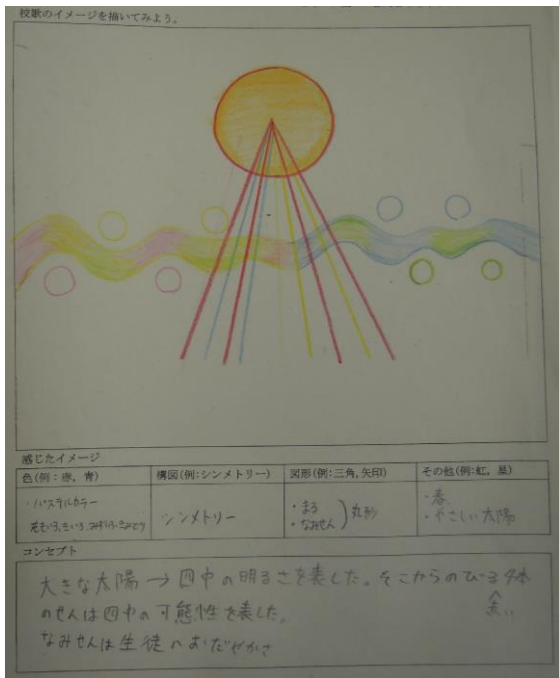 校歌のイメージを描いてみよう。
感じたイメージ
色(例:赤, 青)
構図(例:シンメトリー)
図形(例:三角, 矢印)
その他(例:虹, 星)
・パステルカラー
シンメトリー
・まる
・なみせん
丸形
・春
・やさしい太陽
コンセプト
大きな太陽→四中の明るさを表した。そこからのびる4本
赤い
のせんは四中の可能性を表した。
なみせんは生徒のおだやかさ